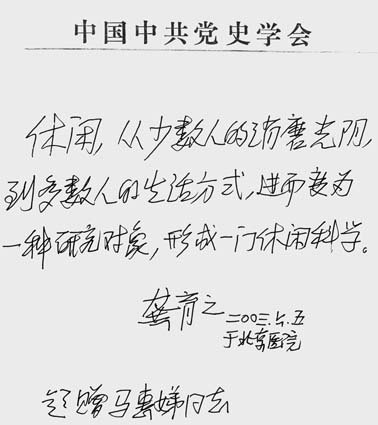 中国中共党史学会
休闲，从少数人的消磨光阴，
到多数人的生活方式，进而变为
一种研究对象，形成一门休闲科学。
龚育之 二〇〇三.六.五
于北京医院
题赠马惠娣同志